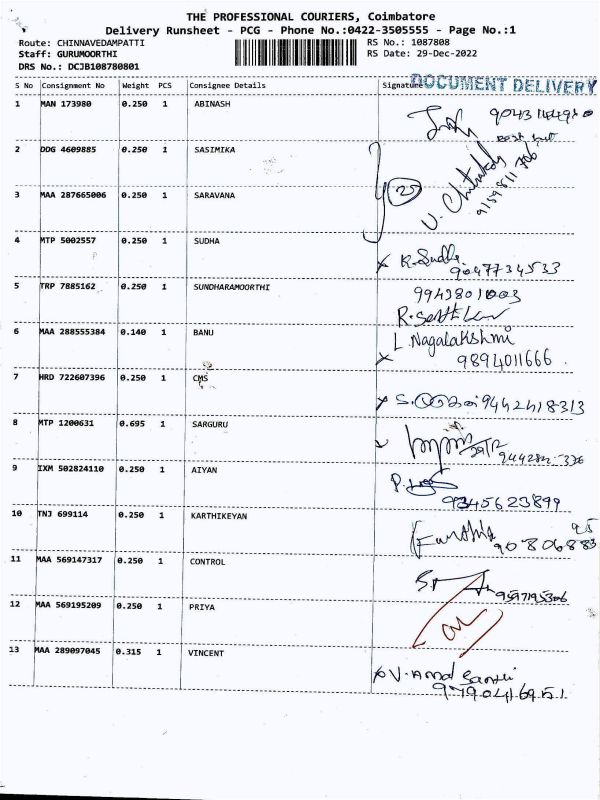 THE PROFESSIONAL COURIERS, Coimbatore
Delivery Runsheet - PCG - Phone No.:0422-3505555 - Page No.:1
Route: CHINNAVEDAMPATTI RS No.: 1087808
Staff: GURUMOORTHI RS Date: 29-Dec-2022
DRS No.: DCJB108780801
S No Consignment No Weight PCS Consignee Details Signature DOCUMENT DELIVERY
1 MAN 173980 0.250 1 ABINASH
2 DDG 4609885 0.250 1 SASIMIKA
3 MAA 287665006 0.250 1 SARAVANA
4 MTP 5002557 0.250 1 SUDHA
9047734533
5 TRP 7885162 0.250 1 SUNDHARAMOORTHI
6 MAA 288555384 0.140 1 BANU L. Nagalakshmi
9894011666
7 HRD 722607396 0.250 1 CMS
9442418313
8 MTP 1200631 0.695 1 SARGURU
9 IXM 502824110 0.250 1 AIYAN
9345623899
10 TNJ 699114 0.250 1 KARTHIKEYAN
11 MAA 569147317 0.250 1 CONTROL
12 MAA 569195209 0.250 1 PRIYA
13 MAA 289097045 0.315 1 VINCENT